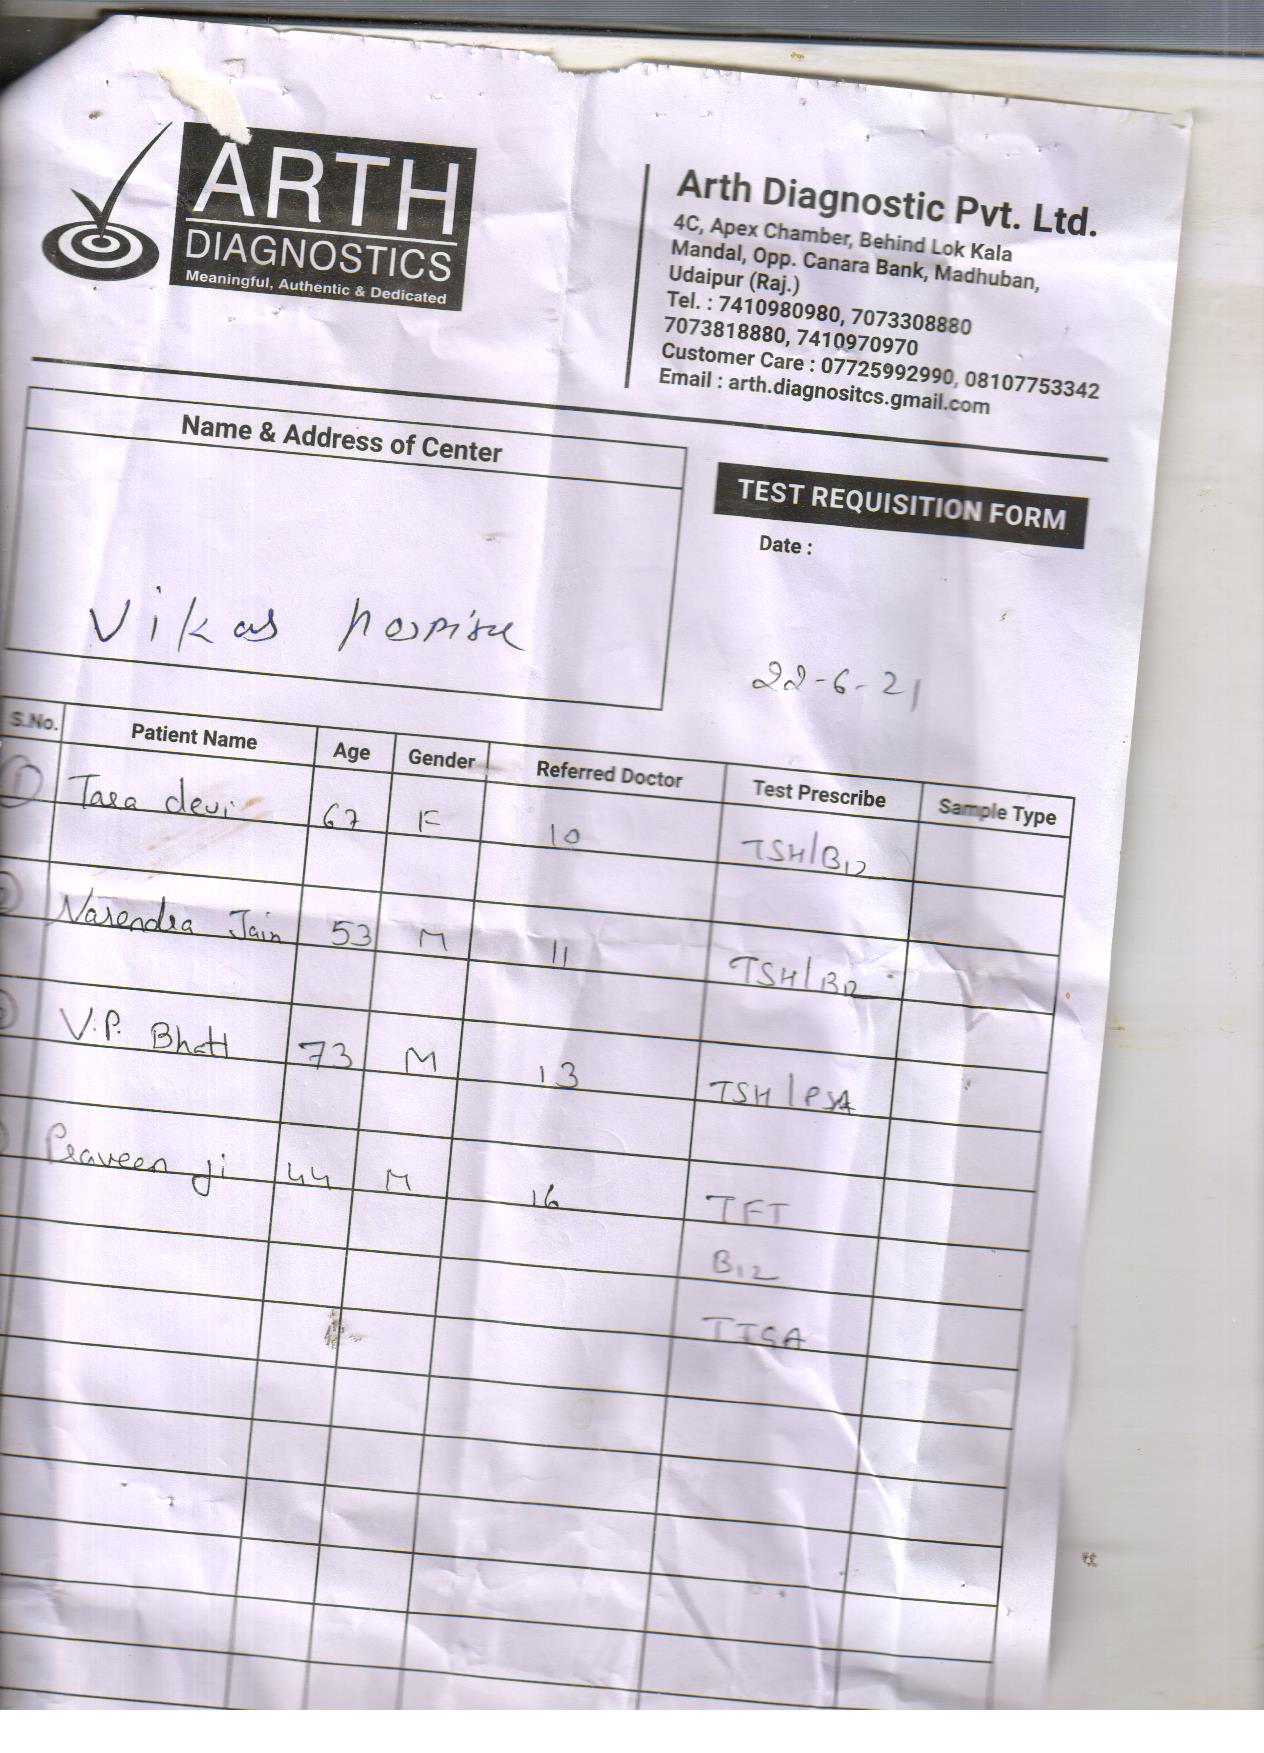 ARTH
DIAGNOSTICS
Meaningful, Authentic & Dedicated
Arth Diagnostic Pvt. Ltd.
4C, Apex Chamber, Behind Lok Kala
Mandal, Opp. Canara Bank, Madhuban,
Udaipur (Raj.)
Tel. : 7410980980, 7073308880
7073818880, 7410970970
Customer Care : 07725992990, 08107753342
Email : arth.diagnositcs.gmail.com
Name & Address of Center
Vikas
TEST REQUISITION FORM
Date :
22-6-21
S.No. Patient Name Age Gender Referred Doctor Test Prescribe Sample Type
1 Tara devi 67 F 10 TSH/B12
2 Narendra Jain 53 M 11 TSH/B12
3 V.P. Bhatt 73 M 13 TSH/PSA
Praveen ji 44 M 16 TFT
B12